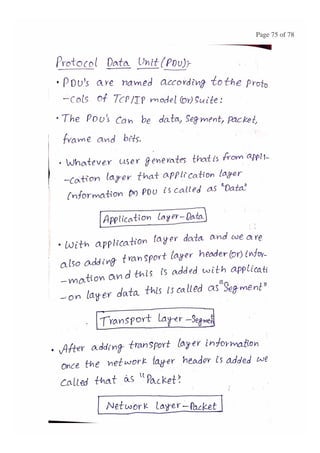 Page 75 of 78
Protocol Data Unit (PDU):-
• PDU's are named according to the proto
-cols of TCP/IP model (or) Suite:
• The PDU's can be data, Segment, packet,
frame and bits.
• Whatever user generates that is from appli-
-cation layer that application layer
information (or) PDU is called as "Data"
Application layer-Data
• With application layer data and we are
also adding transport layer header (or) infor-
-mation and this is added with applicati
-on layer data this is called as "Segment"
Transport Layer -Segment
• After adding transport layer information
once the network layer header is added we
called that as "Packet".
Network Layer-Packet